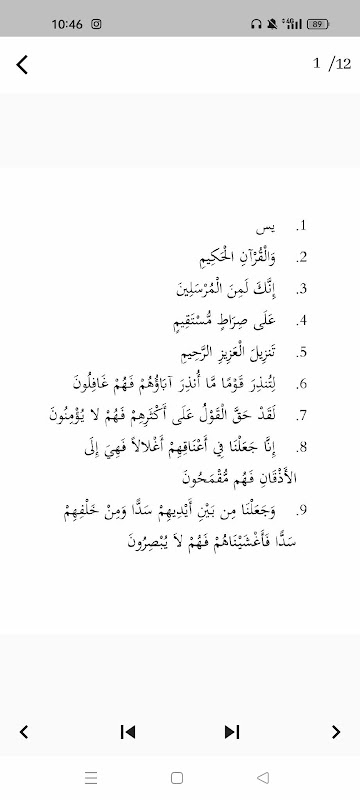 10:46 4G 89
1 /12
1. يس
2. وَالْقُرْآنِ الْحَكِيمِ
3. إِنَّكَ لَمِنَ الْمُرْسَلِينَ
4. عَلَى صِرَاطٍ مُّسْتَقِيمٍ
5. تَنزِيلَ الْعَزِيزِ الرَّحِيمِ
6. لِتُنذِرَ قَوْمًا مَّا أُنذِرَ آبَاؤُهُمْ فَهُمْ غَافِلُونَ
7. لَقَدْ حَقَّ الْقَوْلُ عَلَى أَكْثَرِهِمْ فَهُمْ لا يُؤْمِنُونَ
8. إِنَّا جَعَلْنَا فِي أَعْنَاقِهِمْ أَغْلالاً فَهِيَ إِلَى
الأَذْقَانِ فَهُم مُّقْمَحُونَ
9. وَجَعَلْنَا مِن بَيْنِ أَيْدِيهِمْ سَدًّا وَمِنْ خَلْفِهِمْ
سَدًّا فَأَغْشَيْنَاهُمْ فَهُمْ لاَ يُبْصِرُونَ